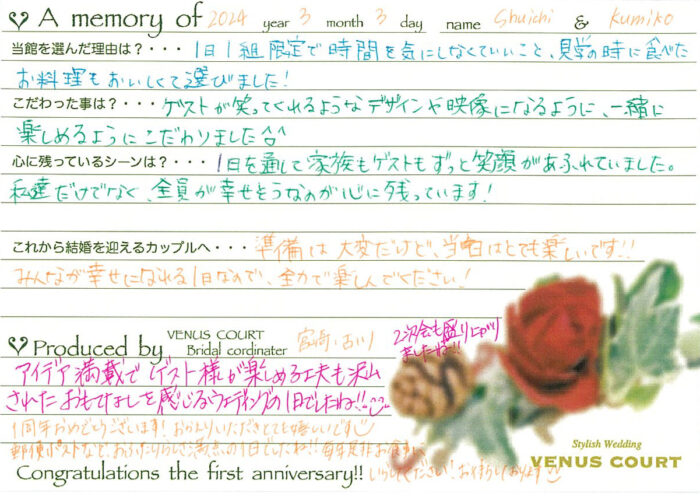 A memory of 2024 year 3 month 3 day name Shuichi & Kumiko
当館を選んだ理由は？・・・1日1組限定で時間を気にしなくていいこと、見学の時に食べた
お料理もおいしくて選びました！
こだわった事は？・・・ゲストが笑ってくれるようなデザインや映像になるように、一緒に
楽しめるようにこだわりました^^
心に残っているシーンは？・・・1日を通して家族もゲストもずっと笑顔があふれていました。
私達だけでなく、全員が幸せそうなのが心に残っています！
これから結婚を迎えるカップルへ・・・準備は大変だけど、当日はとても楽しいです!!
みんなが幸せになれる1日なので、全力で楽しんでください！
Produced by VENUS COURT Bridal cordinater 宮崎・古川
2次会も盛り上がり
ましたね!!
アイデア満載でゲスト様が楽しめる工夫も沢山
されたおもてなしを感じるウェディングの1日でしたね!!
1周年おめでとうございます！おふたりいただきとても嬉しいです
郵便ポストなど、おふたりらしさ満点の1日でしたね!!毎年是非お食事に
いらしてください！お待ちしております
Congratulations the first anniversary!!
Stylish Wedding
VENUS COURT